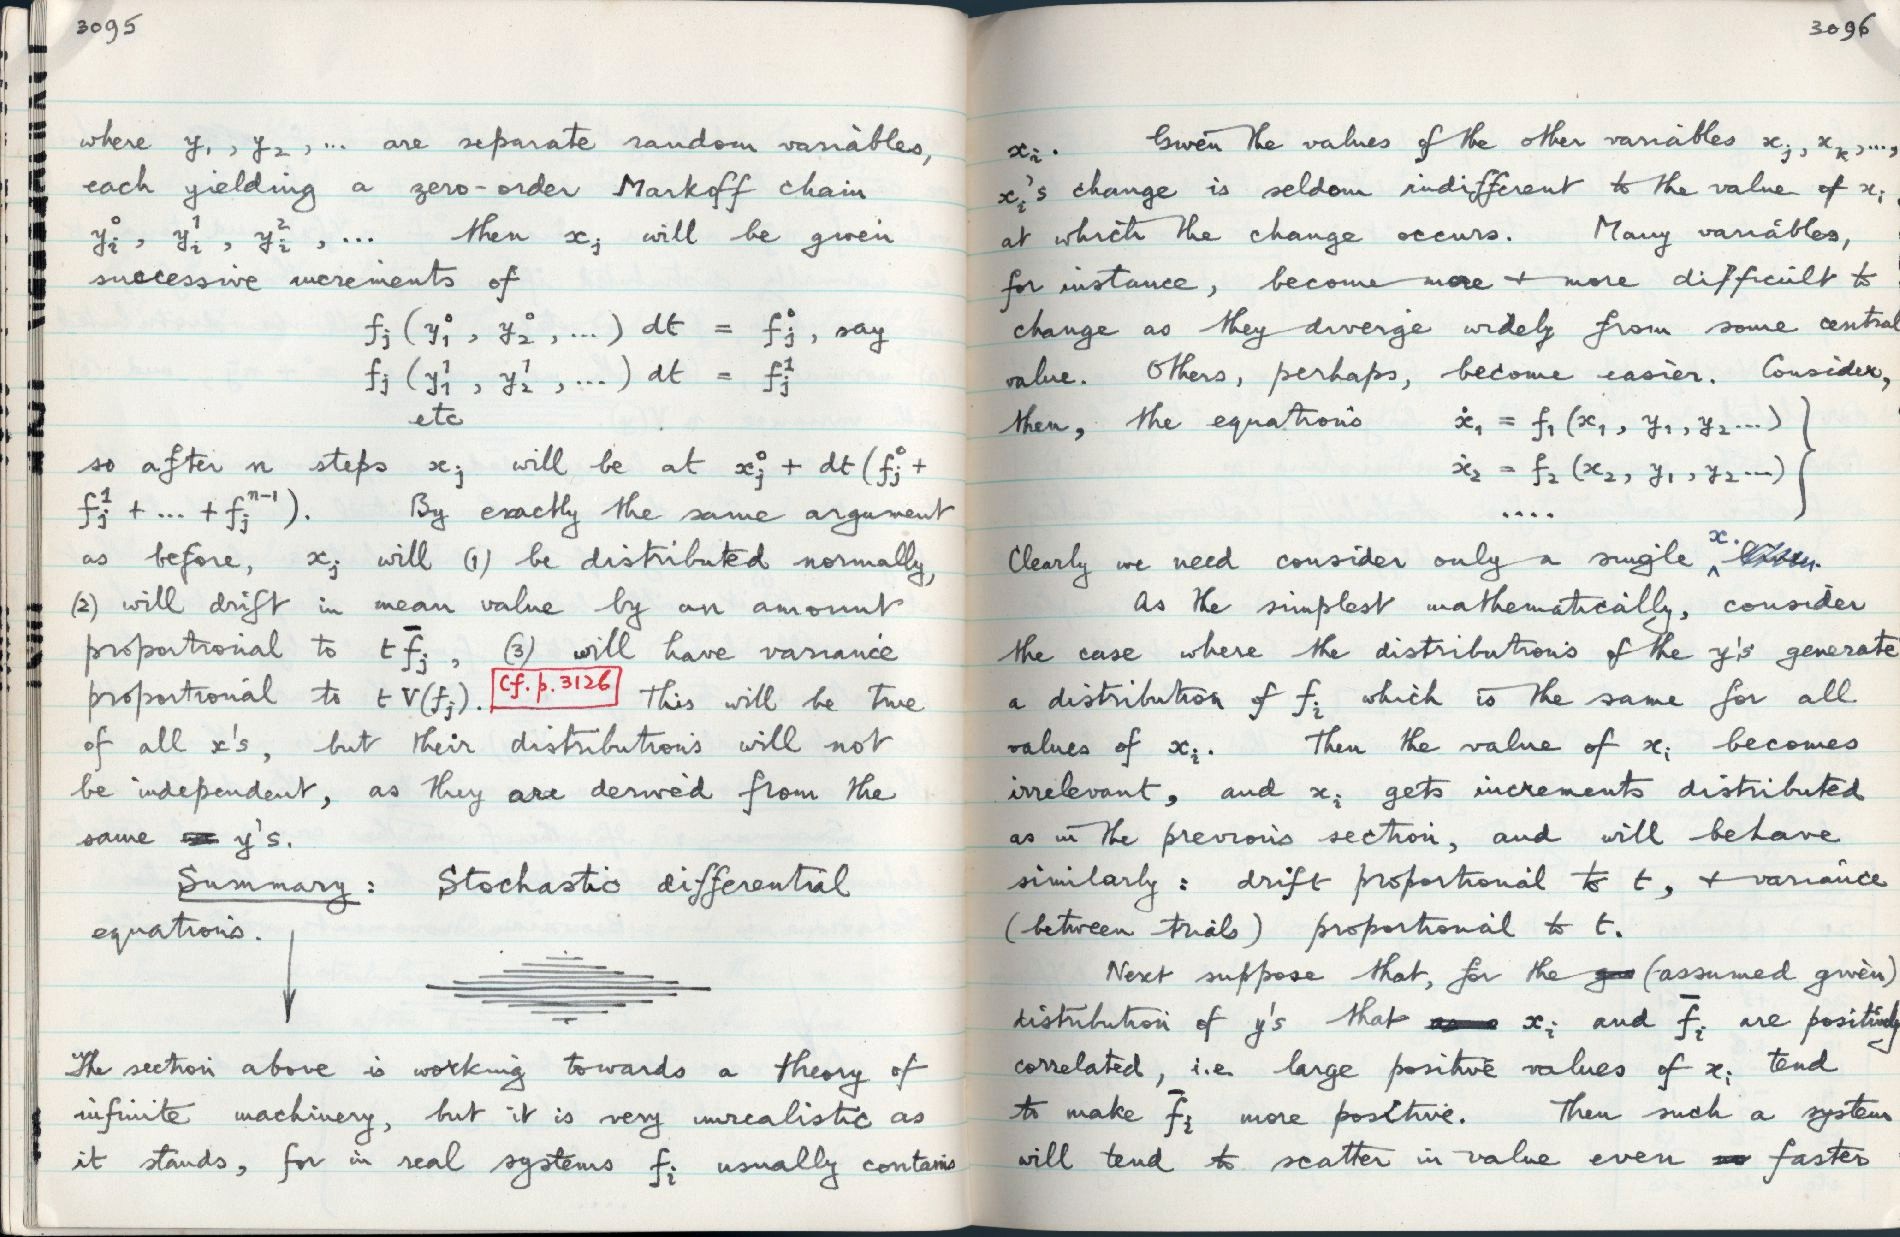 3095
where y₁, y₂, ... are separate random variables,
each yielding a zero-order Markoff chain
yᵢ⁰, yᵢ¹, yᵢ², ... then xⱼ will be given
successive increments of
fⱼ(y₁⁰, y₂⁰, ...) dt = fⱼ⁰, say
fⱼ(y₁¹, y₂¹, ...) dt = fⱼ¹
etc
so after n steps xⱼ will be at xⱼ⁰ + dt(fⱼ⁰ +
fⱼ¹ + ... + fⱼⁿ⁻¹). By exactly the same argument
as before, xⱼ will (1) be distributed normally,
(2) will drift in mean value by an amount
proportional to t f̄ⱼ, (3) will have variance
proportional to t V(fⱼ). Cf. p. 3126 This will be true
of all x's, but their distributions will not
be independent, as they are derived from the
same y's.
Summary: Stochastic differential
equations.
The section above is working towards a theory of
infinite machinery, but it is very unrealistic as
it stands, for in real systems fᵢ usually contains
3096
xᵢ. Given the values of the other variables xⱼ, xₖ, ...,
xᵢ's change is seldom indifferent to the value of xᵢ
at which the change occurs. Many variables,
for instance, become more + more difficult to
change as they diverge widely from some central
value. Others, perhaps, become easier. Consider,
then, the equations ẋ₁ = f₁(x₁, y₁, y₂ ...) }
ẋ₂ = f₂(x₂, y₁, y₂ ...)
....
Clearly we need consider only a single x.
As the simplest mathematically, consider
the case where the distributions of the y's generate
a distribution of fᵢ which is the same for all
values of xᵢ. Then the value of xᵢ becomes
irrelevant, and xᵢ gets increments distributed
as in the previous section, and will behave
similarly: drift proportional to t, + variance
(between trials) proportional to t.
Next suppose that, for the (assumed given)
distribution of y's that xᵢ and f̄ᵢ are positively
correlated, i.e. large positive values of xᵢ tend
to make f̄ᵢ more positive. Then such a system
will tend to scatter in value even faster